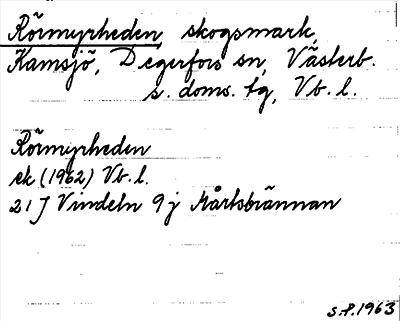 Rörmyrheden, skogsmark,
Kamsjö, Degerfors sn, Västerb.
s. doms. tg, Vb. l.
Rörmyrheden
ek (1962) Vb. l.
21 J Vindeln 9 j Mårtsbrännan
S.P. 1963